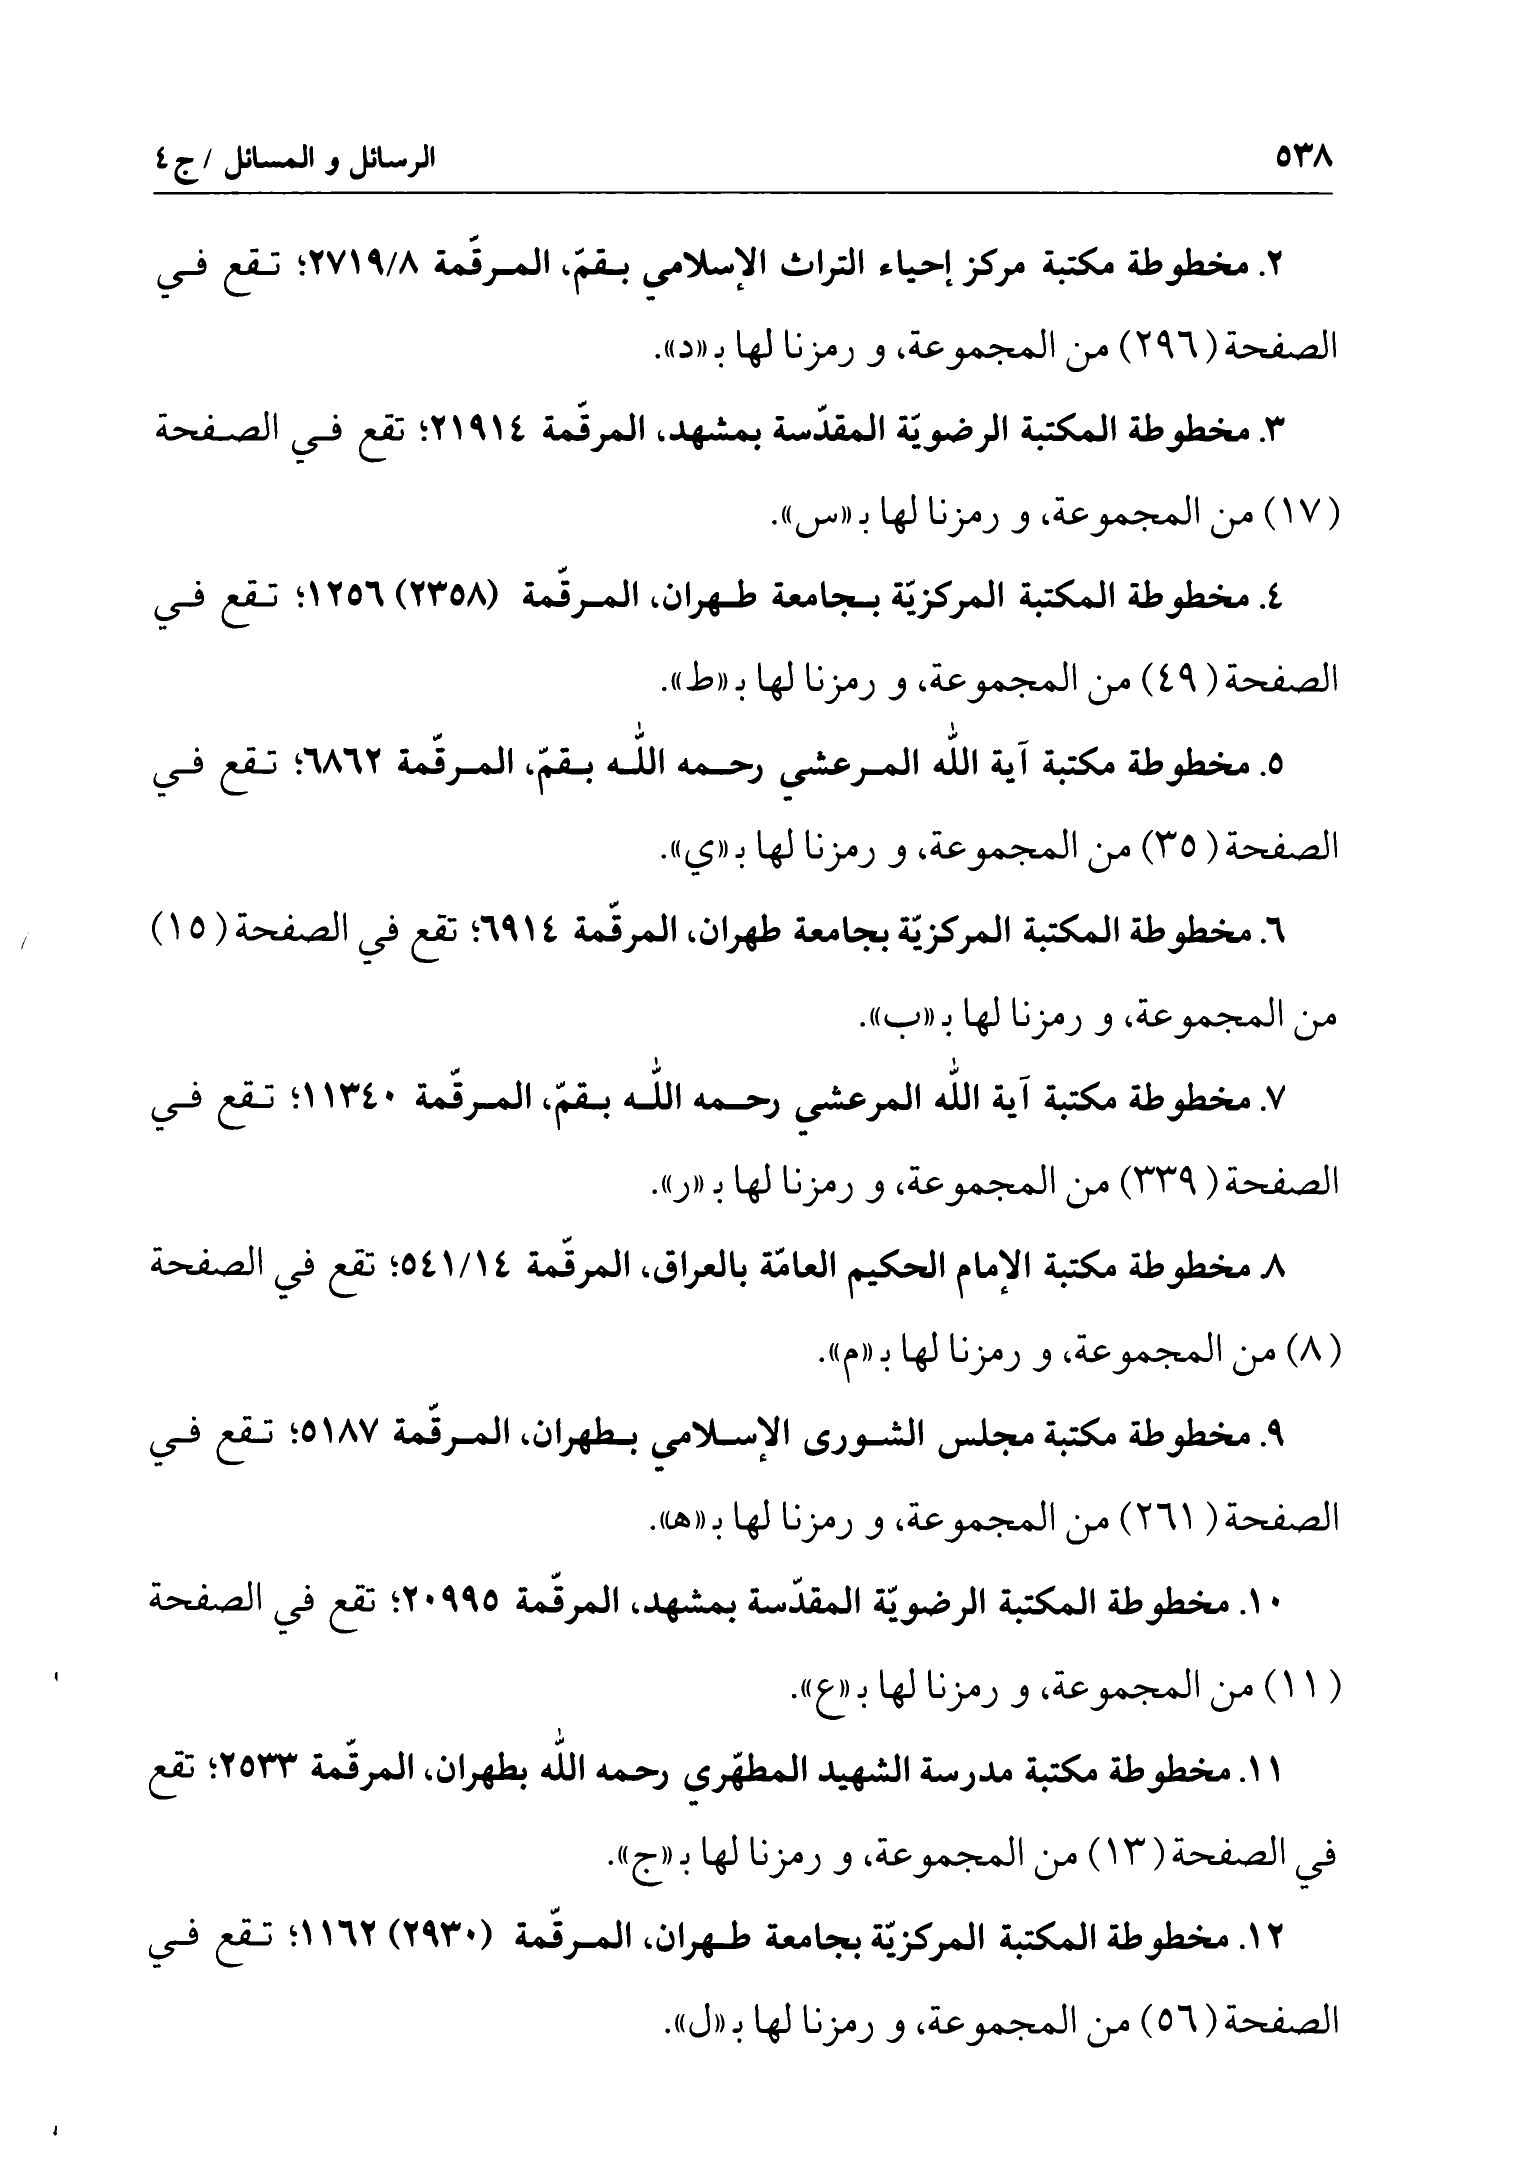 ٥٣٨ الرسائل و المسائل / ج ٤
٢. مخطوطة مكتبة مركز إحياء التراث الإسلامي بـقمّ، المـرقّمة ٢٧١٩/٨؛ تـقع فـي
الصفحة (٢٩٦) من المجموعة، و رمزنا لها بـ «د».
٣. مخطوطة المكتبة الرضويّة المقدّسة بمشهد، المرقّمة ٢١٩١٤؛ تقع فـي الصـفحة
(١٧) من المجموعة، و رمزنا لها بـ «س».
٤. مخطوطة المكتبة المركزيّة بـجامعة طـهران، المـرقّمة (٢٣٥٨) ١٢٥٦؛ تـقع فـي
الصفحة (٤٩) من المجموعة، و رمزنا لها بـ «ط».
٥. مخطوطة مكتبة آية اللّٰه المـرعشي رحـمه اللّٰـه بـقمّ، المـرقّمة ٦٨٦٢؛ تـقع فـي
الصفحة (٣٥) من المجموعة، و رمزنا لها بـ «ي».
٦. مخطوطة المكتبة المركزيّة بجامعة طهران، المرقّمة ٦٩١٤؛ تقع في الصفحة (١٥)
من المجموعة، و رمزنا لها بـ «ب».
٧. مخطوطة مكتبة آية اللّٰه المرعشي رحـمه اللّٰـه بـقمّ، المـرقّمة ١١٣٤٠؛ تـقع فـي
الصفحة (٣٣٩) من المجموعة، و رمزنا لها بـ «ر».
٨. مخطوطة مكتبة الإمام الحكيم العامّة بالعراق، المرقّمة ٥٤١/١٤؛ تقع في الصفحة
(٨) من المجموعة، و رمزنا لها بـ «م».
٩. مخطوطة مكتبة مجلس الشـورى الإسـلامي بـطهران، المـرقّمة ٥١٨٧؛ تـقع فـي
الصفحة (٢٦١) من المجموعة، و رمزنا لها بـ «ها».
١٠. مخطوطة المكتبة الرضويّة المقدّسة بمشهد، المرقّمة ٢٠٩٩٥؛ تقع في الصفحة
(١١) من المجموعة، و رمزنا لها بـ «ع».
١١. مخطوطة مكتبة مدرسة الشهيد المطهّري رحمه اللّٰه بطهران، المرقّمة ٢٥٣٣؛ تقع
في الصفحة (١٣) من المجموعة، و رمزنا لها بـ «ج».
١٢. مخطوطة المكتبة المركزيّة بجامعة طـهران، المـرقّمة (٢٩٣٠) ١١٦٢؛ تـقع فـي
الصفحة (٥٦) من المجموعة، و رمزنا لها بـ «ل».